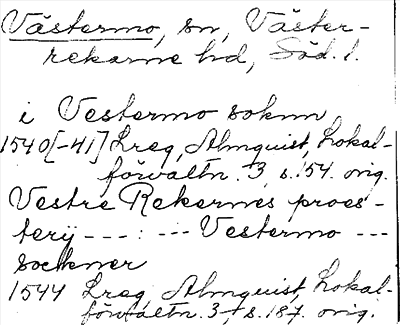 Västermo, sn, Väster-
rekarne hd, Söd. l.
i Vestermo soknn
1540[-41] Lreg, Almquist, Lokal-
förvaltn. 3, s. 154. orig.
Vestre Rekernes proes-
terij ---:--- Vestermo ---
sockner
1544 Lreg, Almquist, Lokal-
förvaltn. 3, s. 187. orig.